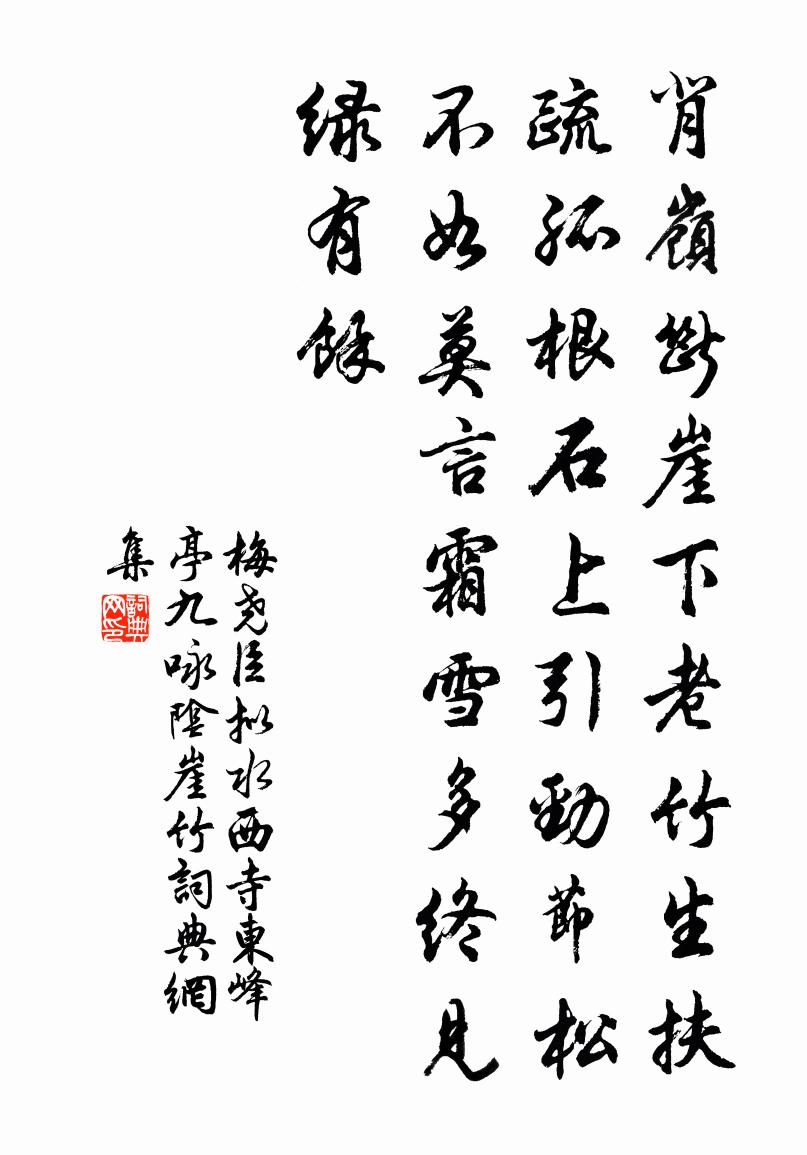 背嶺斷崖下老竹生扶
疏孤根石上引勁節松
不如莫言霜雪多終見
綠有餘
梅尧臣拟水西寺東峰
亭九咏陰崖竹詞典網
集
詞典网印